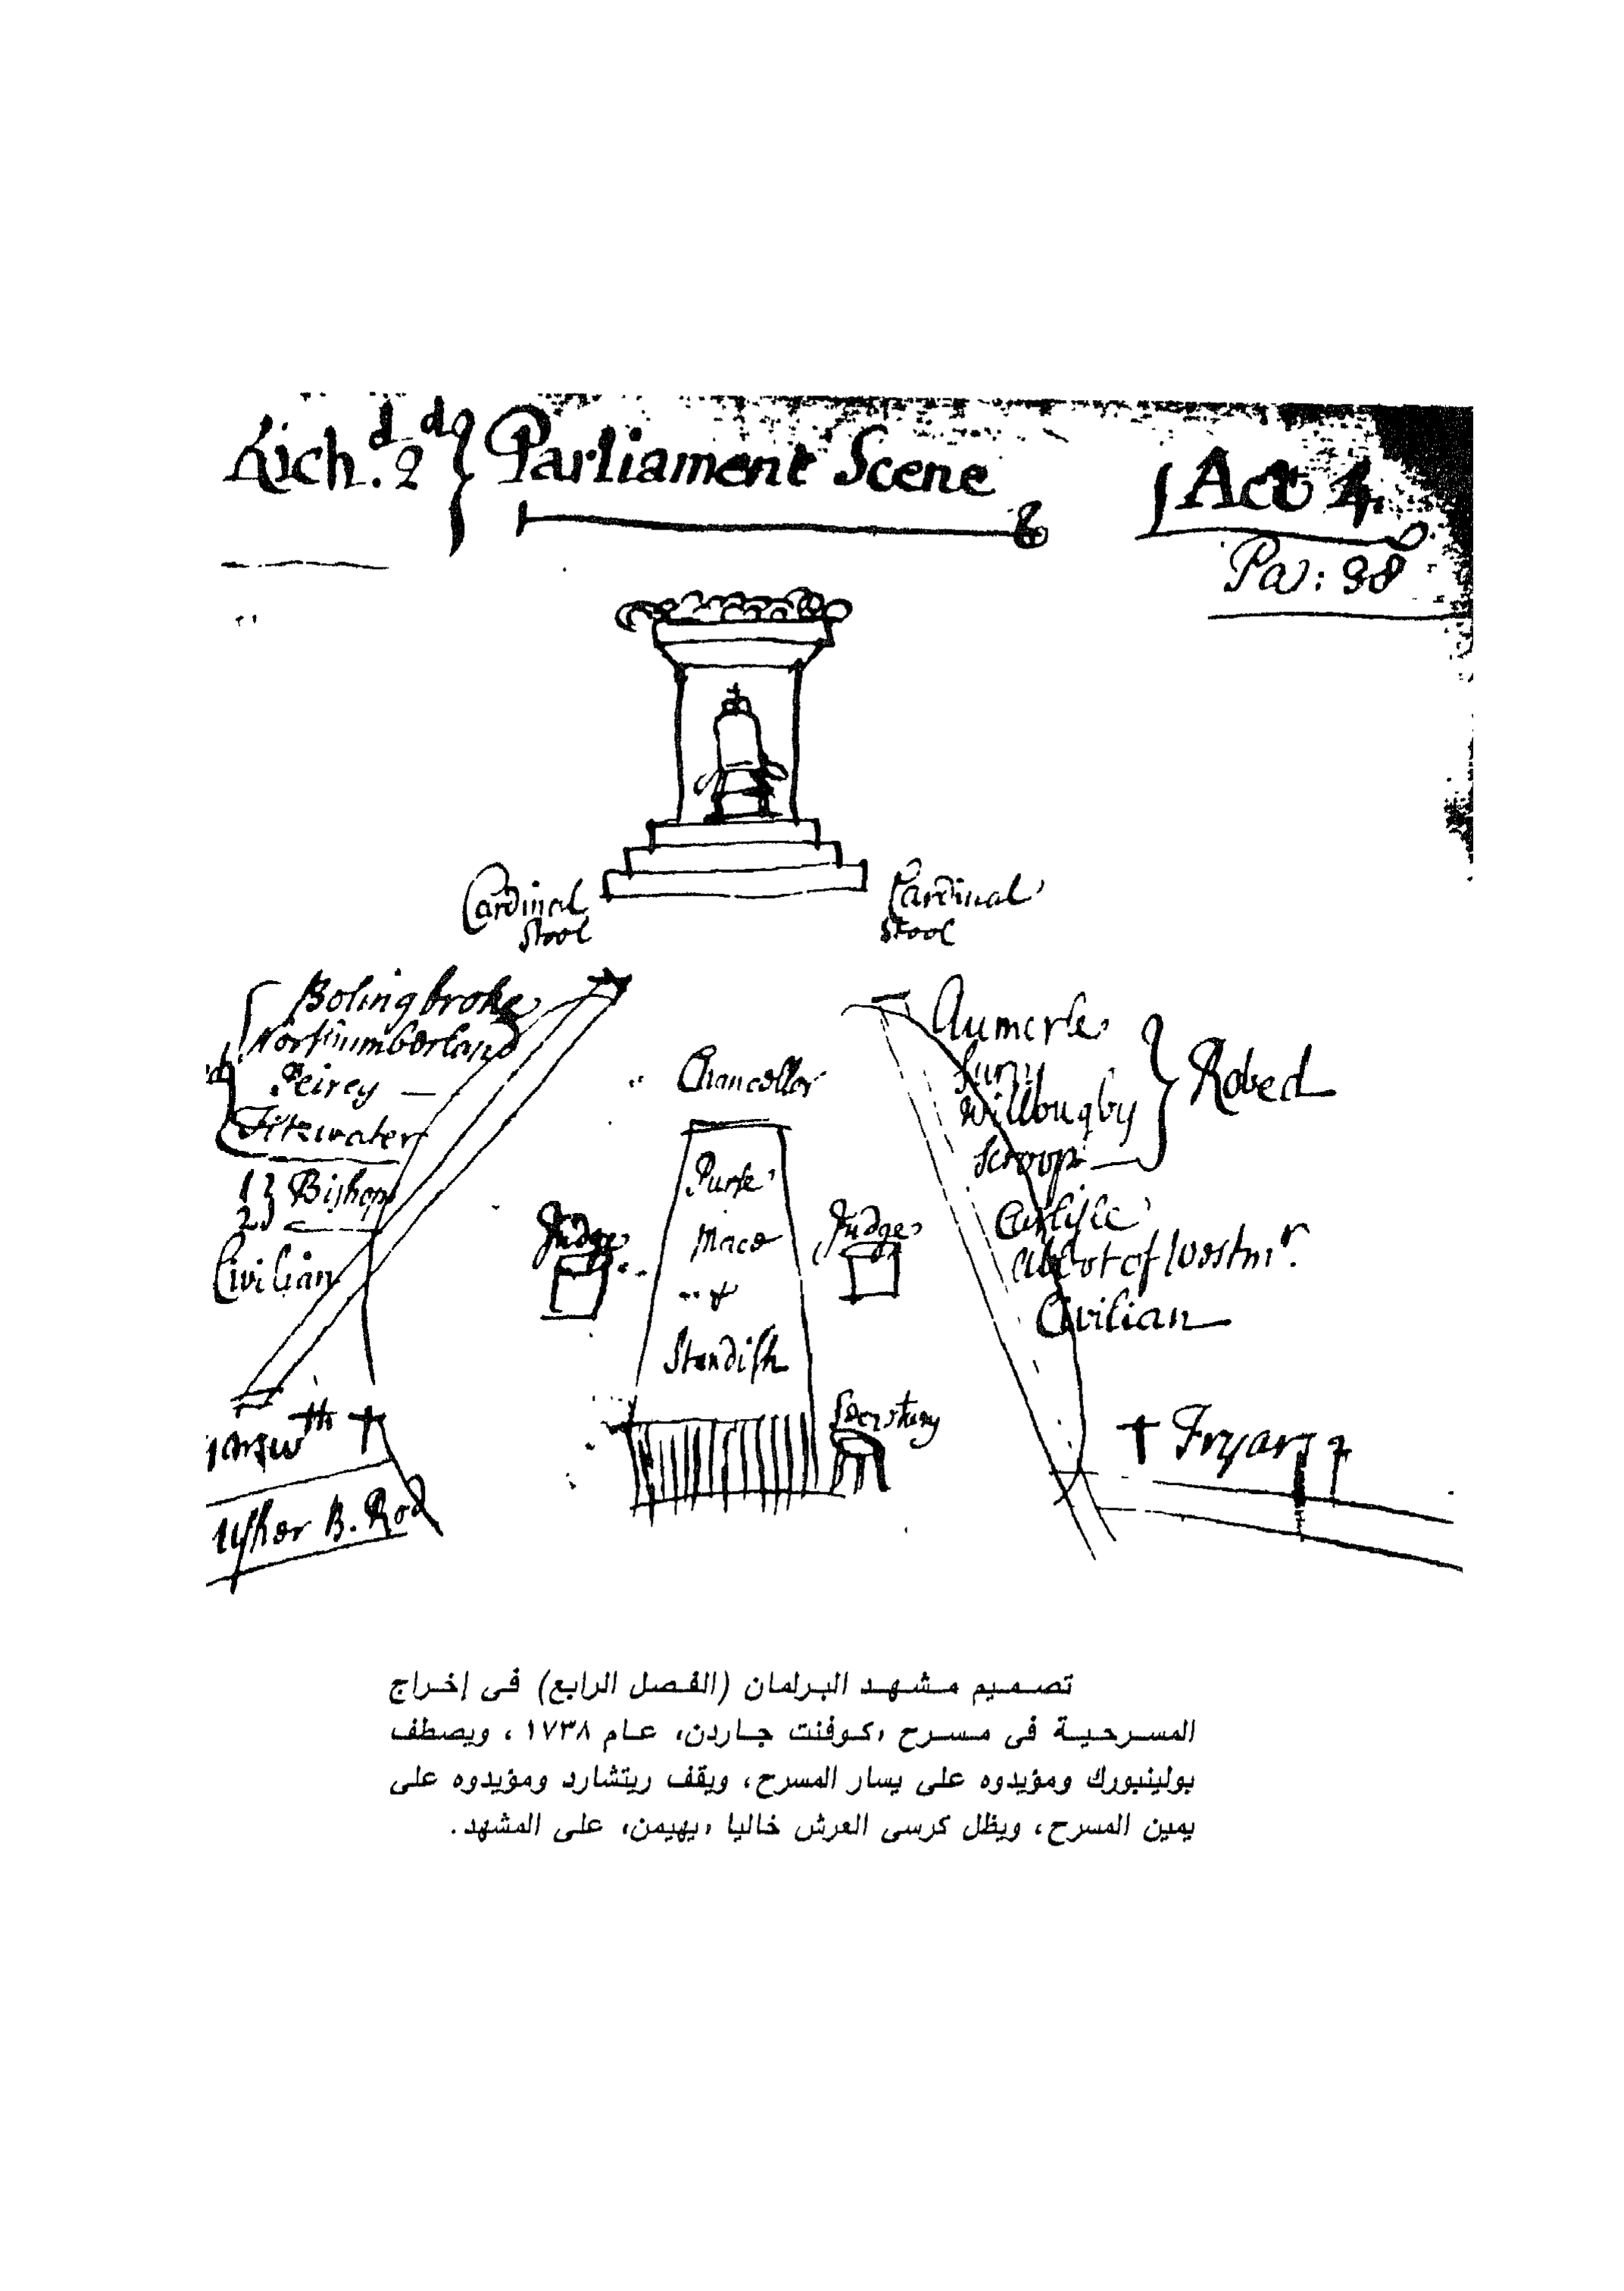 Rich.d 2d } Parliament Scene
Act 4.
Pa: 38
Cardinal
Stool
Cardinal
Stool
Bolingbroke
Northumberland
Peircy
Fitzwater
1 } Bishop
2
Civilian
Chancellor
Purse
Mace
&
Standish
Judge
Judge
Aumerle
Surry
Willougby
Scroop
Robed
Carlisle
Abbot of Westmr.
Civilian
Usher B. Rod
Fryars 2
تصميم مشهد البرلمان (الفصل الرابع) فى إخراج
المسرحية فى مسرح «كوفنت جاردن» عام ١٧٣٨ ، ويصطف
بولينبورك ومؤيدوه على يسار المسرح، ويقف ريتشارد ومؤيدوه على
يمين المسرح، ويظل كرسى العرش خاليا «يهيمن» على المشهد.